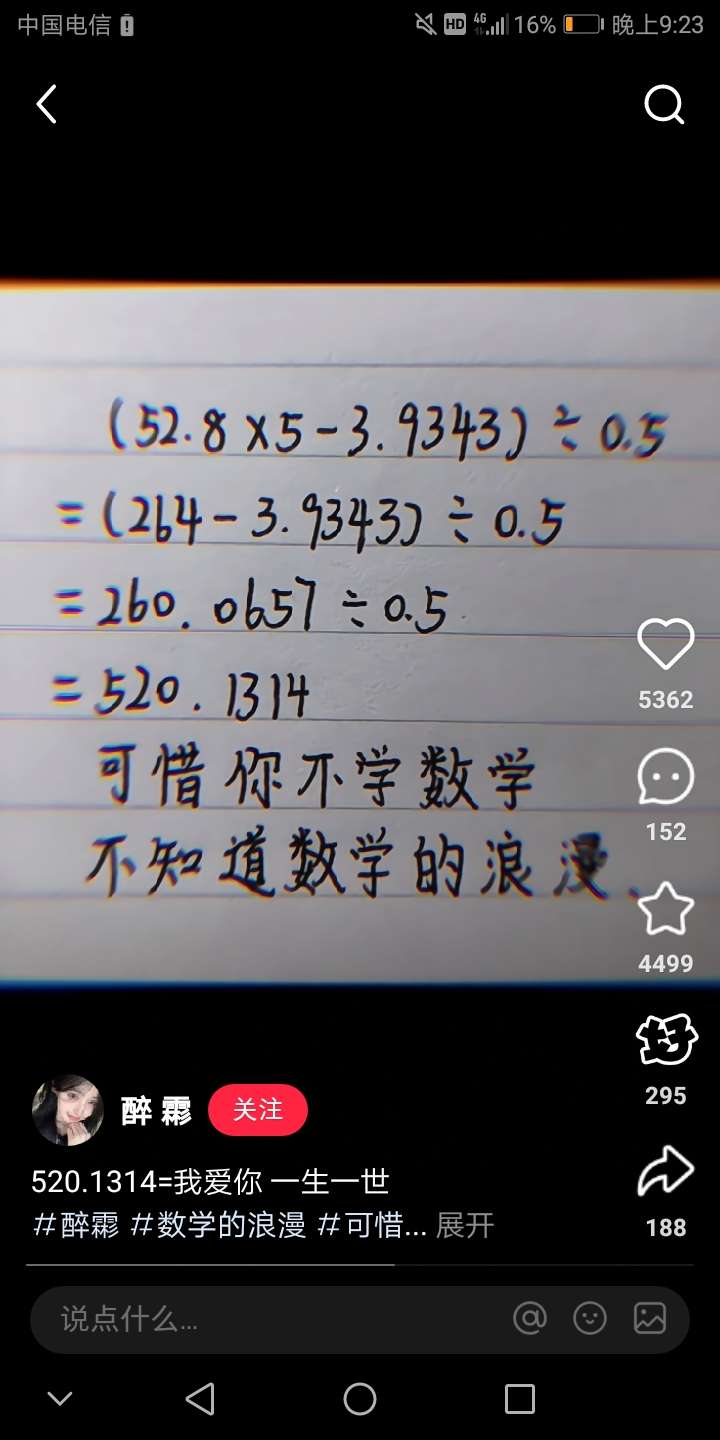 中国电信 HD 4G 16% 晚上9:23
(52.8×5-3.9343)÷0.5
=(264-3.9343)÷0.5
=260.0657÷0.5
=520.1314
可惜你不学数学
不知道数学的浪漫、
5362
152
4499
好
295
188
醉霏 关注
520.1314=我爱你 一生一世
#醉霏 #数学的浪漫 #可惜... 展开
说点什么...